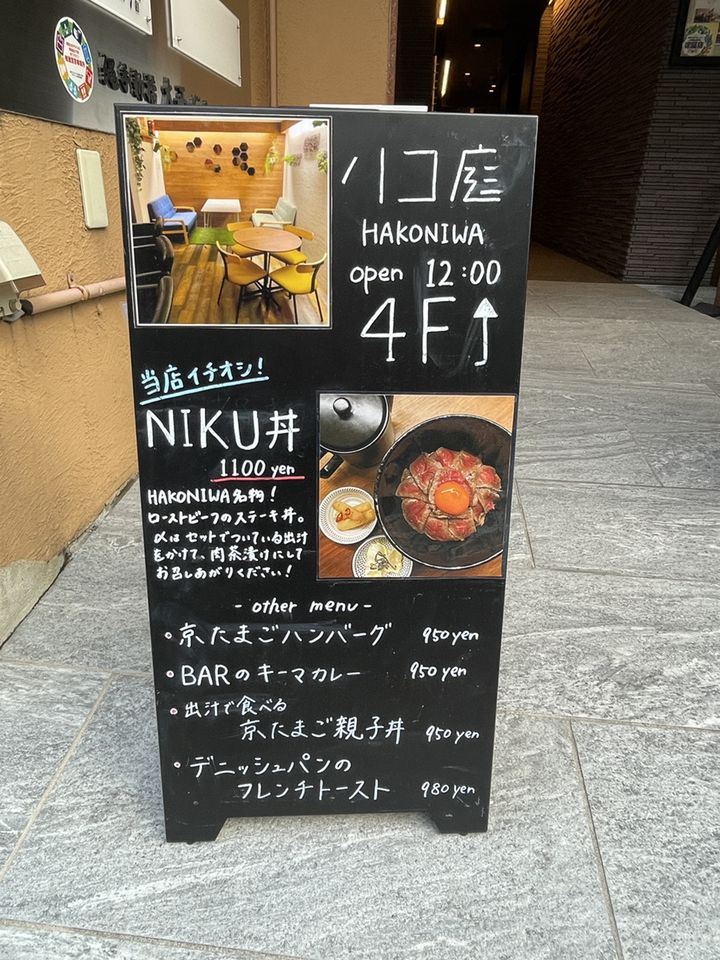 ハコ庭
HAKONIWA
open 12:00
4F↑
当店イチオシ！
NIKU丼
1100 yen
HAKONIWA名物！
ローストビーフのステーキ丼。
〆はセットでついている出汁
をかけて、肉茶漬けにして
お召しあがりください！
- other menu -
・京たまごハンバーグ 950 yen
・BARのキーマカレー 950 yen
・出汁で食べる
京たまご親子丼 950 yen
・デニッシュパンの
フレンチトースト 980 yen